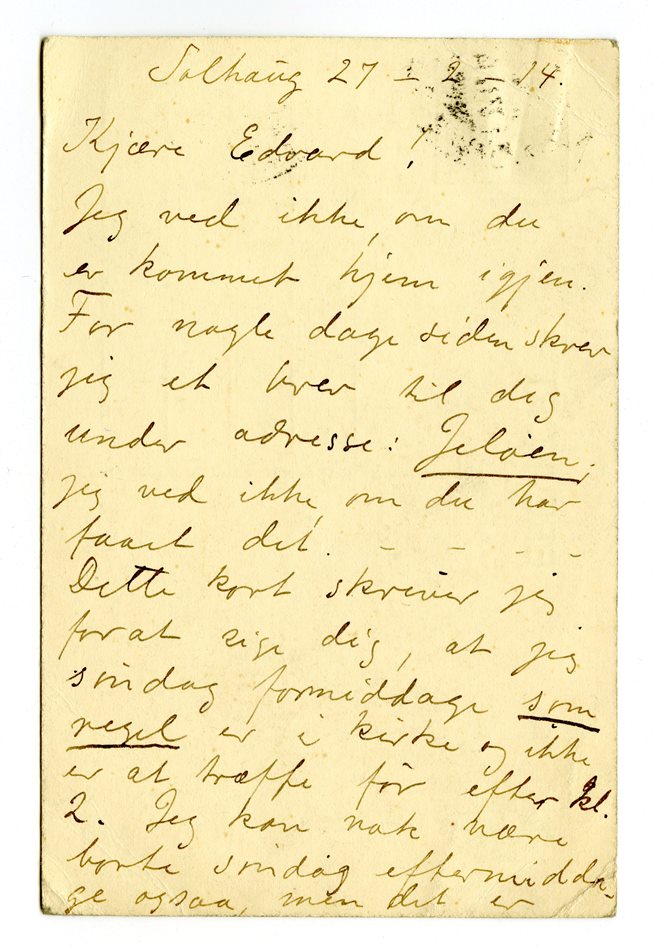 Solhaug 27 – 2 – 14.
Kjære Edvard!
Jeg ved ikke, om du
er kommet hjem igjen.
For nogle dage siden skrev
jeg et brev til dig
under adresse: Jeløen,
jeg ved ikke, om du har
faaet det. – – – –
Dette kort skriver jeg
forat sige dig, at jeg
søndag formiddage som
regel er i kirke og ikke
er at træffe før efter kl.
2. Jeg kan nok være
borte søndag eftermidda-
ge ogsaa, men det er